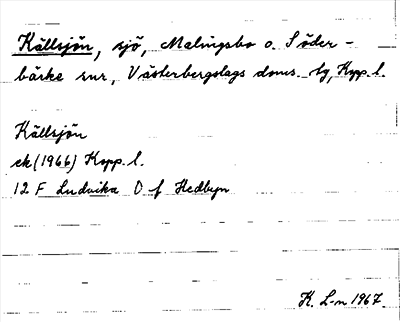 Källsjön, sjö, Malingsbo o. Söder-
bärke snr, Västerbergslags doms. tg, Kopp. l.
Källsjön
ek (1966) Kopp. l.
12 F Ludvika O f Hedbyn
K. L-n 1967.